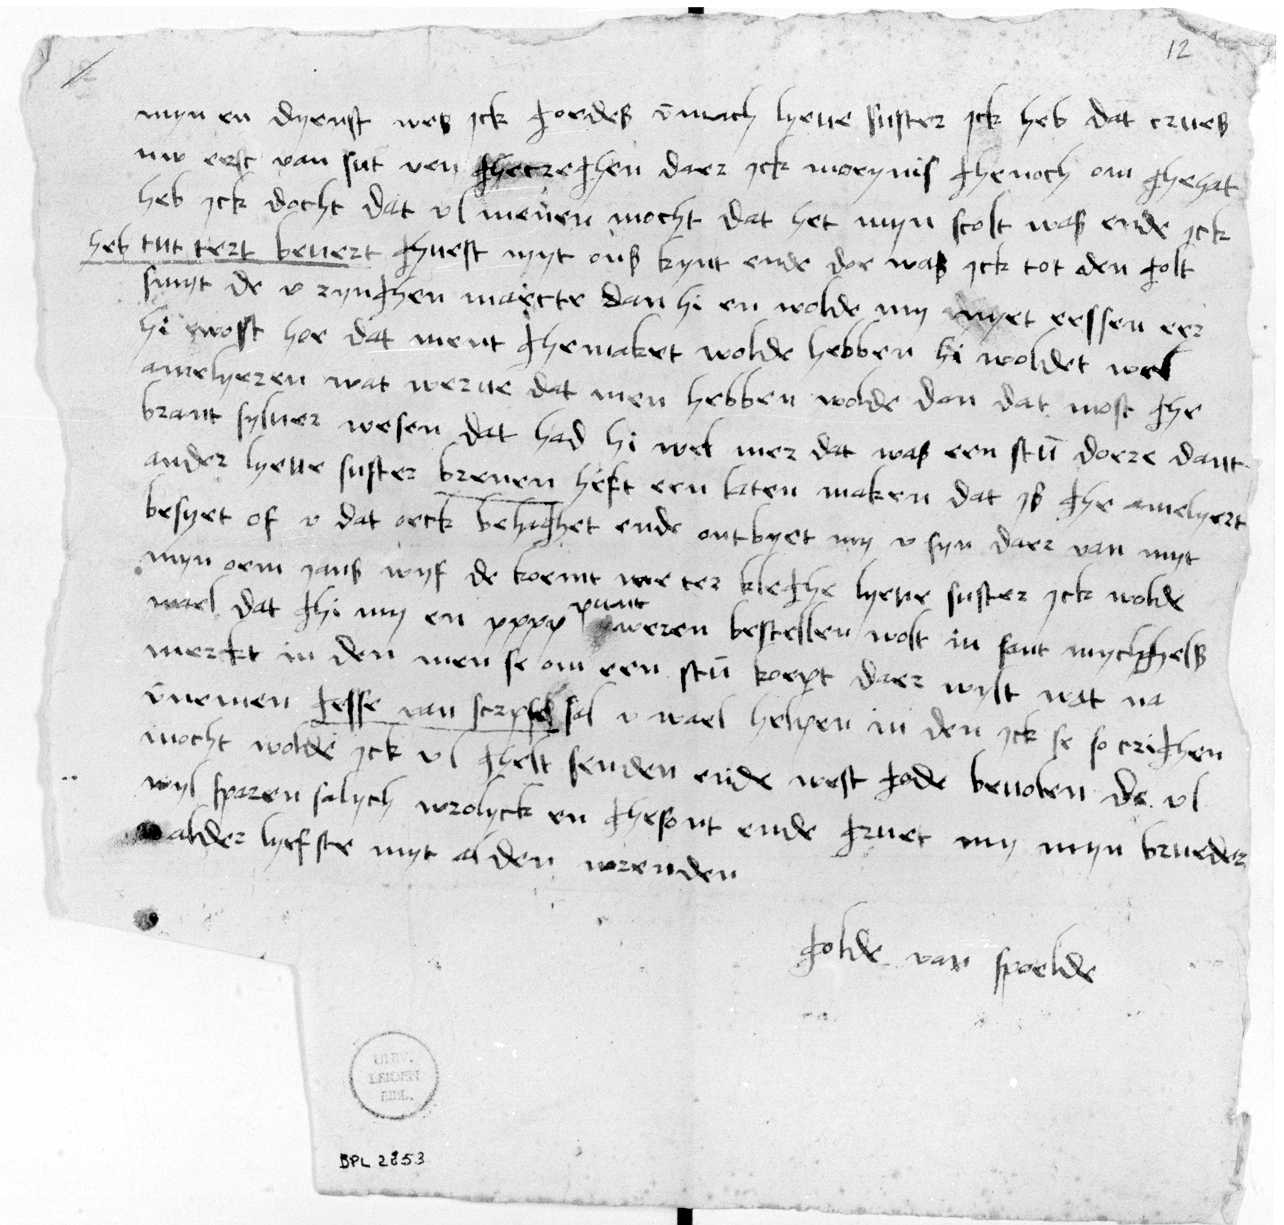 12
mijn en dyenst wes ick goedes v̄mach lyeue suster ick heb dat crues
nw erst van sut ven ghecreghen daer ick moeynis ghenoch om ghehat
heb ick docht dat vl menen mocht dat het myn scolt was ende ick
heb tut tert beuert ghuest myt ons kynt ende doe was ick tot den golt
smyt de v rynghen maecte dan hi en wolde my nyet eessen eer
hi wost hoe dat ment ghemaket wolde hebben hi woldet wel
amelyeren wat werue dat men hebben wolde dan dat most ghe
brant syluer wesen dat had hi wel mer dat was een stū doere dant
ander lyeue suster breuen heft een laten maken dat is ghe amelyert
besyet of v dat oeck behaghet ende ontbyet my v syn daer van myt
myn oem jans wyf de koemt we ter kleghe lyeue suster ick wolde
wael dat ghi my en xxxx punt weren bestellen wolt in sant mychghels
merkt in den men se om een stū koept daer wylt wat na
v̄nemen gesse van scrych sal v wael helpen in den ick se so crighen
mocht wolde ick vl ghelt senden ende west gode beuolen de vl
wyl sparen salych wrolyck en ghesont ende gruet my myn brueder
alder lyefste myt al den wrenden
golde van spoelde
UNIV.
LEIDEN
BIBL.
BPL 2853